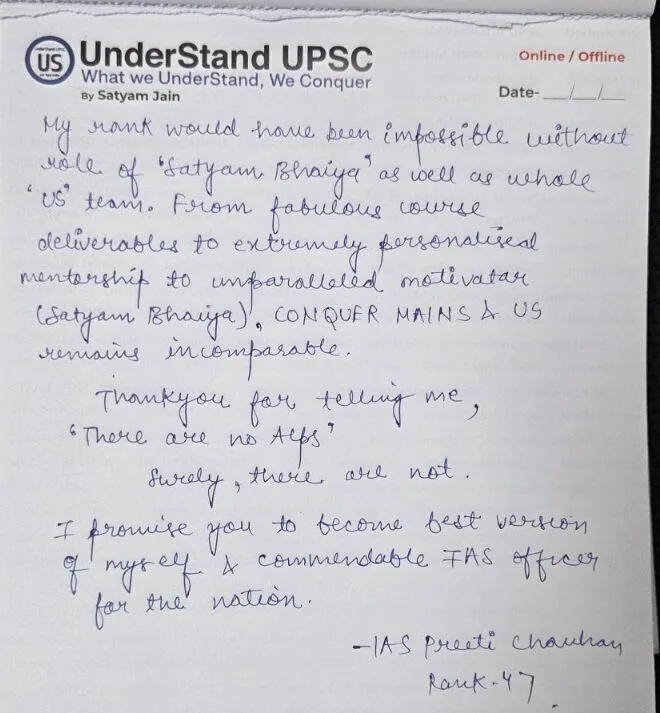 US
UnderStand UPSC
What we UnderStand, We Conquer
By Satyam Jain
Online / Offline
Date- __/__/__
My rank would have been impossible without
role of "Satyam Bhaiya" as well as whole
"US" team. From fabulous course
deliverables to extremely personalised
mentorship to unparalleled motivatar
(Satyam Bhaiya), CONQUER MAINS & US
remains incomparable.
Thankyou for telling me,
"There are no Alps"
Surely, there are not.
I promise you to become best version
of myself & commendable IAS officer
for the nation.
-IAS Preeti Chauhan
Rank-47